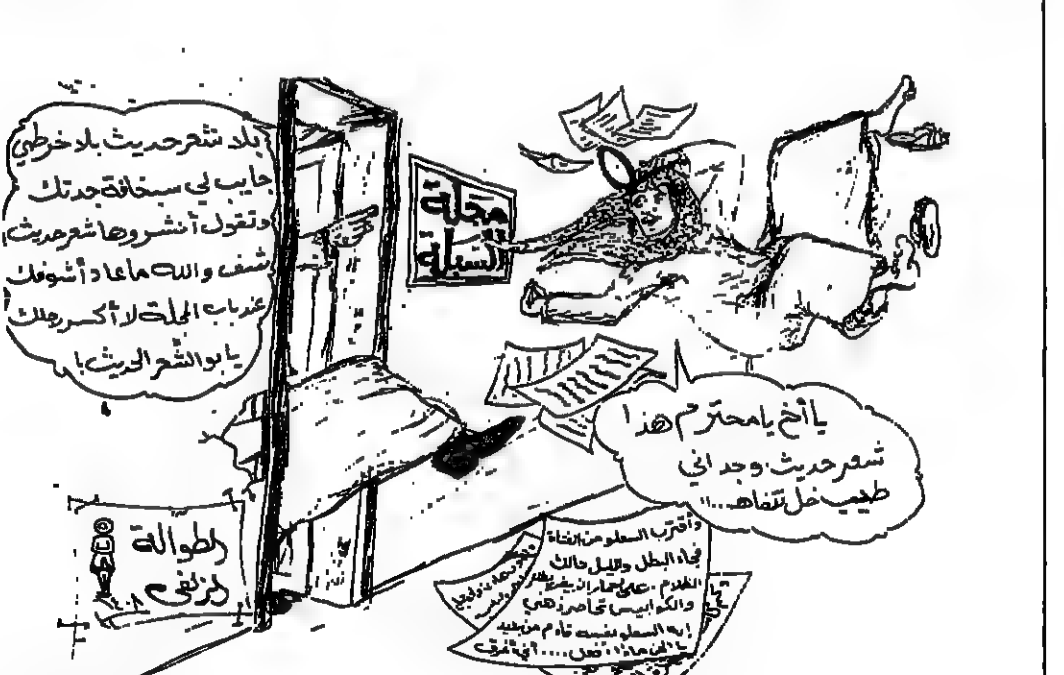 بلا شعر حديث بلا خرطي
جايب لي سخافة جدتك
وتقول أنشروها شعر حديث!
شف والله ما عاد أشوفك
عند باب المجلة لا أكسر رجلك
يا بو الشعر الحديث!
مجلة
السبلة
يا أخ يا محترم هذا
شعر حديث وجداني
طيب خل نتفاهـ...!!
وأقترب السعلو من الفتاة
فجاء البطل والليل حالك
الظلام
والكوابيس تحاصر ذهني
إنه السعلو نفسه قادم من بعيد
يا إلهي ماذا أفعل....
الطوالة
الزلفي
١٤٠٨